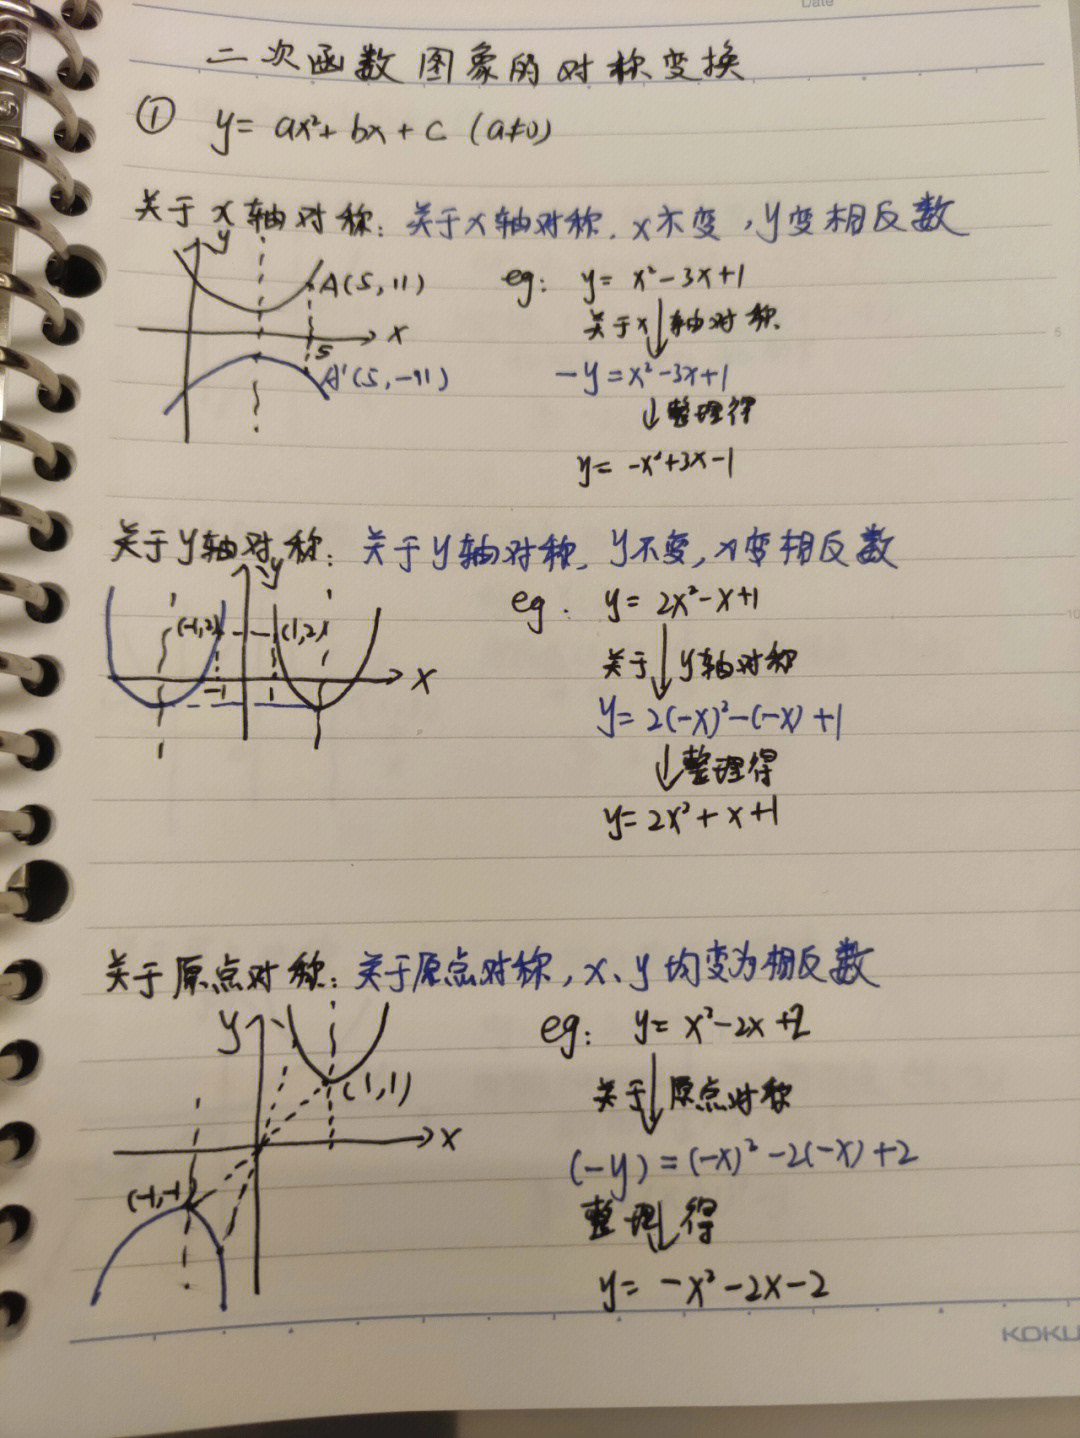 Date
二次函数图象的对称变换
① y=ax²+bx+c (a≠0)
关于x轴对称: 关于x轴对称, x不变,y变相反数
y
A(5,11)
x
5
A'(5,-11)
eg: y=x²-3x+1
关于x轴对称
-y=x²-3x+1
整理得
y=-x²+3x-1
关于y轴对称: 关于y轴对称, y不变,x变相反数
y
(-1,2) (1,2)
x
-1 1
eg: y=2x²-x+1
关于y轴对称
y=2(-x)²-(-x)+1
整理得
y=2x²+x+1
关于原点对称: 关于原点对称,x、y均变为相反数
y
(1,1)
x
(-1,-1)
eg: y=x²-2x+2
关于原点对称
(-y)=(-x)²-2(-x)+2
整理得
y=-x²-2x-2
5
10
KOKU